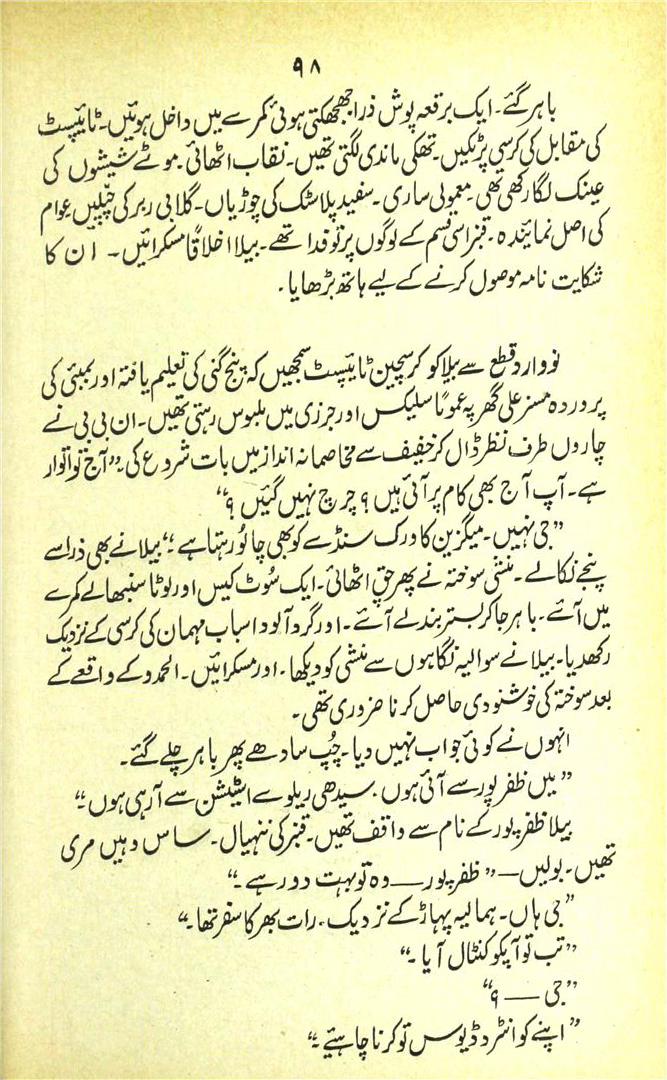 ۹۸
باہر گئے۔ ایک برقعہ پوش ذرا جھجھکتی ہوئی کمرے میں داخل ہوئیں۔ ٹائپسٹ
کی مقابل کی کرسی پر ٹکیں۔ تھکی ماندی لگتی تھیں۔ نقاب اٹھائی۔ موٹے شیشوں کی
عینک لگا رکھی تھی۔ معمولی ساری۔ سفید پلاسٹک کی چوڑیاں۔ گلابی ربر کی چپلیں عوام
کی اصل نمائندہ۔ قنبر اسی قسم کے لوگوں پر تو فدا تھے۔ بیلا اخلاقاً مسکرائیں۔ ان کا
شکایت نامہ موصول کرنے کے لیے ہاتھ بڑھایا۔
نووارد قطع سے بیلا کو کرسچین ٹائپسٹ سمجھیں کہ پنج گنی کی تعلیم یافتہ اور بمبئی کی
پروردہ مسز علی گھر پہ عموماً سلیکس اور جرزی میں ملبوس رہتی تھیں۔ ان بی بی نے
چاروں طرف نظر ڈال کر خفیف سے مخاصمانہ انداز میں بات شروع کی۔ ”آج تو اتوار
ہے۔ آپ آج بھی کام پر آئی ہیں؟ چرچ نہیں گئیں؟“
”جی نہیں۔ میگزین کا ورک سنڈے کو بھی چالو رہتا ہے۔“ بیلا نے بھی ذرا سے
پنجے نکالے۔ منشی سوختہ نے پھر حق اٹھائی۔ ایک سوٹ کیس اور لوٹا سنبھالے کمرے
میں آئے۔ باہر جا کر بستر بند لے آئے۔ اور گرد آلود اسباب مہمان کی کرسی کے نزدیک
رکھ دیا۔ بیلا نے سوالیہ نگاہوں سے منشی کو دیکھا۔ اور مسکرائیں۔ الحمدو کے واقعے کے
بعد سوختہ کی خوشنودی حاصل کرنا ضروری تھی۔
انہوں نے کوئی جواب نہیں دیا۔ چُپ سادھے پھر باہر چلے گئے۔
”میں ظفر پور سے آئی ہوں۔ سیدھی ریلوے اسٹیشن سے آ رہی ہوں۔“
بیلا ظفر پور کے نام سے واقف تھیں۔ قنبر کی ننہیال۔ ساس وہیں مری
تھیں۔ بولیں — ”ظفر پور — وہ تو بہت دور ہے۔“
”جی ہاں۔ ہمالیہ پہاڑ کے نزدیک۔ رات بھر کا سفر تھا۔“
”تب تو آپکو کنٹال آیا۔“
”جی — ؟“
”اپنے کو انٹروڈیوس تو کرنا چاہیئے۔“